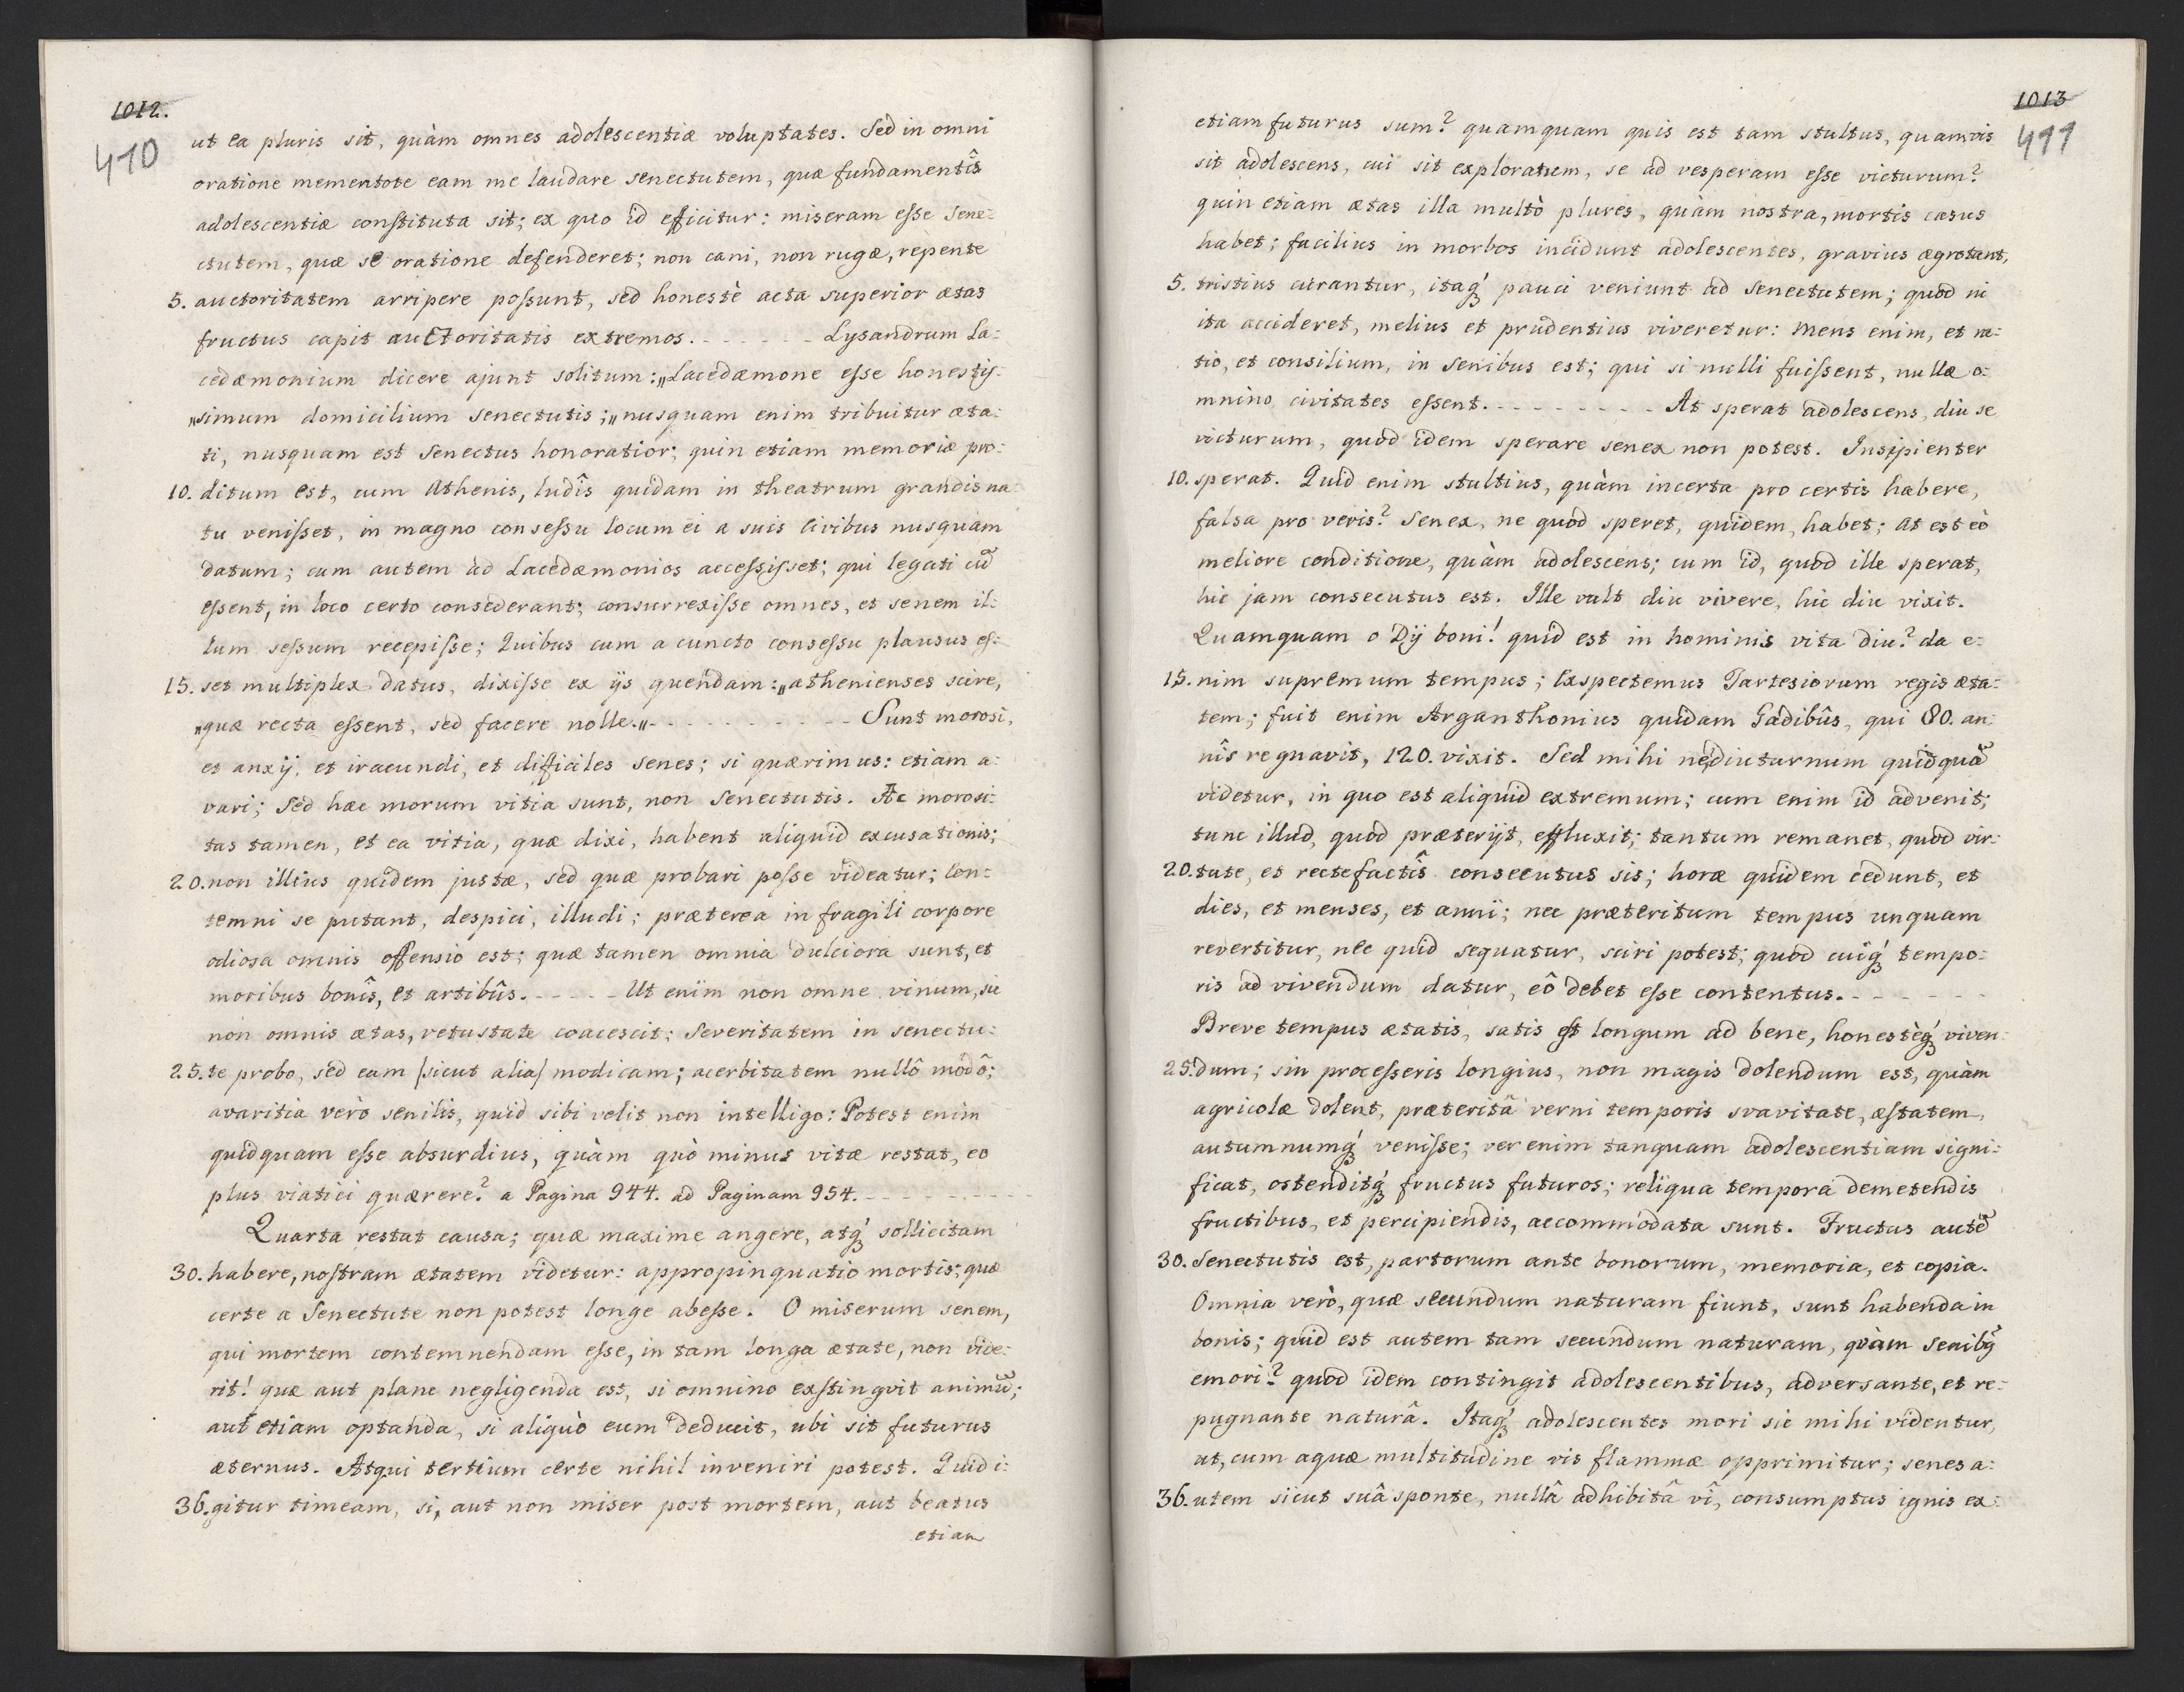 1012.
410
ut ea pluris sit, quàm omnes adolescentiæ voluptates. Sed in omni
oratione mementote eam me laudare senectutem, quæ fundamentîs
adolescentiæ constituta sit; ex quo id efficitur: miseram esse sene=
ctutem, quæ se oratione defenderet; non cani, non rugæ, repente
5. auctoritatem arripere possunt, sed honestè acta superior ætas
fructus capit auctoritatis extremos. - - - - - - Lysandrum La=
cedæmonium dicere ajunt solitum: „Lacedæmone esse honestis=
„simum domicilium senectutis;„ nusquam enim tribuitur æta=
ti, nusquam est senectus honoratior; quin etiam memoriæ pro=
10. ditum est, cum Athenis, ludîs quidam in theatrum grandis na=
tu venisset, in magno consessu locum ei a suis civibus nusquam
datum; cum autem ad Lacedæmonios accessisset; qui legati cũ
essent, in loco certo consederant; consurrexisse omnes, et senem il=
lum sessum recepisse; Quibus cum a cuncto consessu plausus es=
15. set multiplex datus, dixisse ex ijs quendam: „athenienses scire,
„quæ recta essent, sed facere nolle.„ - - - - - - - - - - Sunt morosi,
et anxij, et iracundi, et difficiles senes; si quærimus: etiam a=
vari; Sed hæc morum vitia sunt, non Senectutis. Ac morosi=
tas tamen, et ea vitia, quæ dixi, habent aliquid excusationis;
20. non illius quidem justæ, sed quæ probari posse videatur; Con=
temni se putant, despici, illudi; præterea in fragili corpore
odiosa omnis offensio est; quæ tamen omnia dulciora sunt, et
moribus bonîs, et artibûs. - - - - - Ut enim non omne vinum, sic
non omnis ætas, vetustate coacescit; Severitatem in senectu=
25. te probo, sed eam /sicut alia/ modicam; acerbitatem nullô modô;
avaritia verò senilis, quid sibi velit non intelligo: Potest enim
quidquam esse absurdius, quàm quò minus vitæ restat, eo
plus viatici quærere? a Pagina 944. ad Paginam 954. - - - - - - - -
Quarta restat causa; quæ maxime angere, atq́ sollicitam
30. habere, nostram ætatem videtur: appropinquatio mortis; quæ
certe a Senectute non potest longe abesse. O miserum senem,
qui mortem contemnendam esse, in tam longa ætate, non vide=
rit! quæ aut plane negligenda est, si omnino exstingvit animũ;
aut etiam optanda, si aliquò eum deducit, ubi sit futurus
æternus. Atqui tertium certe nihil inveniri potest. Quid i=
36. gitur timeam, si, aut non miser post mortem, aut beatus
etiam
1013
411
etiam futurus sum? quamquam quis est tam stultus, quamvis
sit adolescens, cui sit exploratum, se ad vesperam esse victurum?
quin etiam ætas illa multò plures, quàm nostra, mortis casus
habet; facilius in morbos incidunt adolescentes, gravius ægrotant,
5. tristius curantur, itaq́ pauci veniunt ad senectutem; quod ni
ita accideret, melius et prudentius viveretur: Mens enim, et ra=
tio, et consilium, in senibus est; qui si nulli fuissent, nullæ o=
mnino civitates essent. - - - - - - - - - At sperat adolescens, diu se
victurum, quod idem sperare senex non potest. Insipienter
10. sperat. Quid enim stultius, quàm incerta pro certis habere,
falsa pro veris? Senex, ne quod speret, quidem, habet; at est eò
meliore conditione, quàm adolescens; cum id, quod ille sperat,
hic jam consecutus est. Ille vult diu vivere, hic diu vixit.
Quamquam o Dij boni! quid est in hominis vita diu? da e=
15. nim supremum tempus; Exspectemus Tartesiorum regis æta=
tem; fuit enim Arganthonius quidam Gadibûs, qui 80. an=
nîs regnavit, 120. vixit. Sed mihi ne diuturnum quidquã
videtur, in quo est aliquid extremum; cum enim id advenit;
tunc illud, quod præterijt, effluxit; tantum remanet, quod vir=
20. tute, et rectefactîs consecutus sis; horæ quidem cedunt, et
dies, et menses, et anni; nec præteritum tempus unquam
revertitur, nec quid sequatur, sciri potest; quod cuiq́ tempo=
ris ad vivendum datur, eô debet esse contentus. - - - - - -
Breve tempus ætatis, satis est longum ad bene, honestèq́ viven=
25. dum; sin processeris longius, non magis dolendum est, quàm
agricolæ dolent, præteritâ verni temporis svavitate, æstatem,
autumnumq́ venisse; ver enim tanquam adolescentiam signi=
ficat, ostenditq́ fructus futuros; reliqua tempora demetendis
fructibus, et percipiendis, accommodata sunt. Fructus autẽ
30. Senectutis est, partorum ante bonorum, memoria, et copia.
Omnia verò, quæ secundum naturam fiunt, sunt habenda in
bonis; quid est autem tam secundum naturam, quàm senibq́
emori? quod idem contingit adolescentibus, adversante, et re=
pugnante naturâ. Itaq́ adolescentes mori sic mihi videntur,
ut, cum aquæ multitudine vis flammæ opprimitur; senes a=
36. utem sicut suâ sponte, nullâ adhibitâ vî, consumptus ignis ex=